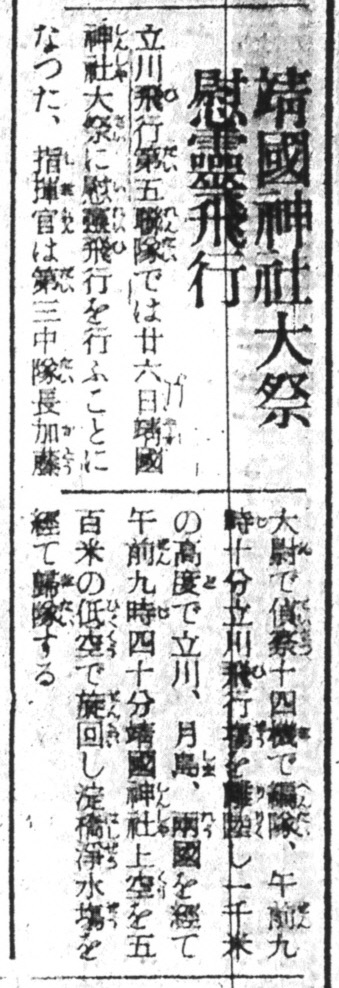 靖國神社大祭
慰靈飛行
立川飛行第五聯隊では廿六日靖國
神社大祭に慰靈飛行を行ふことに
なつた、指揮官は第三中隊長加藤
大尉で偵察十四機で編隊、午前九
時十分立川飛行場を離陸し一千米
の高度で立川、月島、兩國を經て
午前九時四十分靖國神社上空を五
百米の低空で旋回し淀橋淨水場を
經て歸隊する